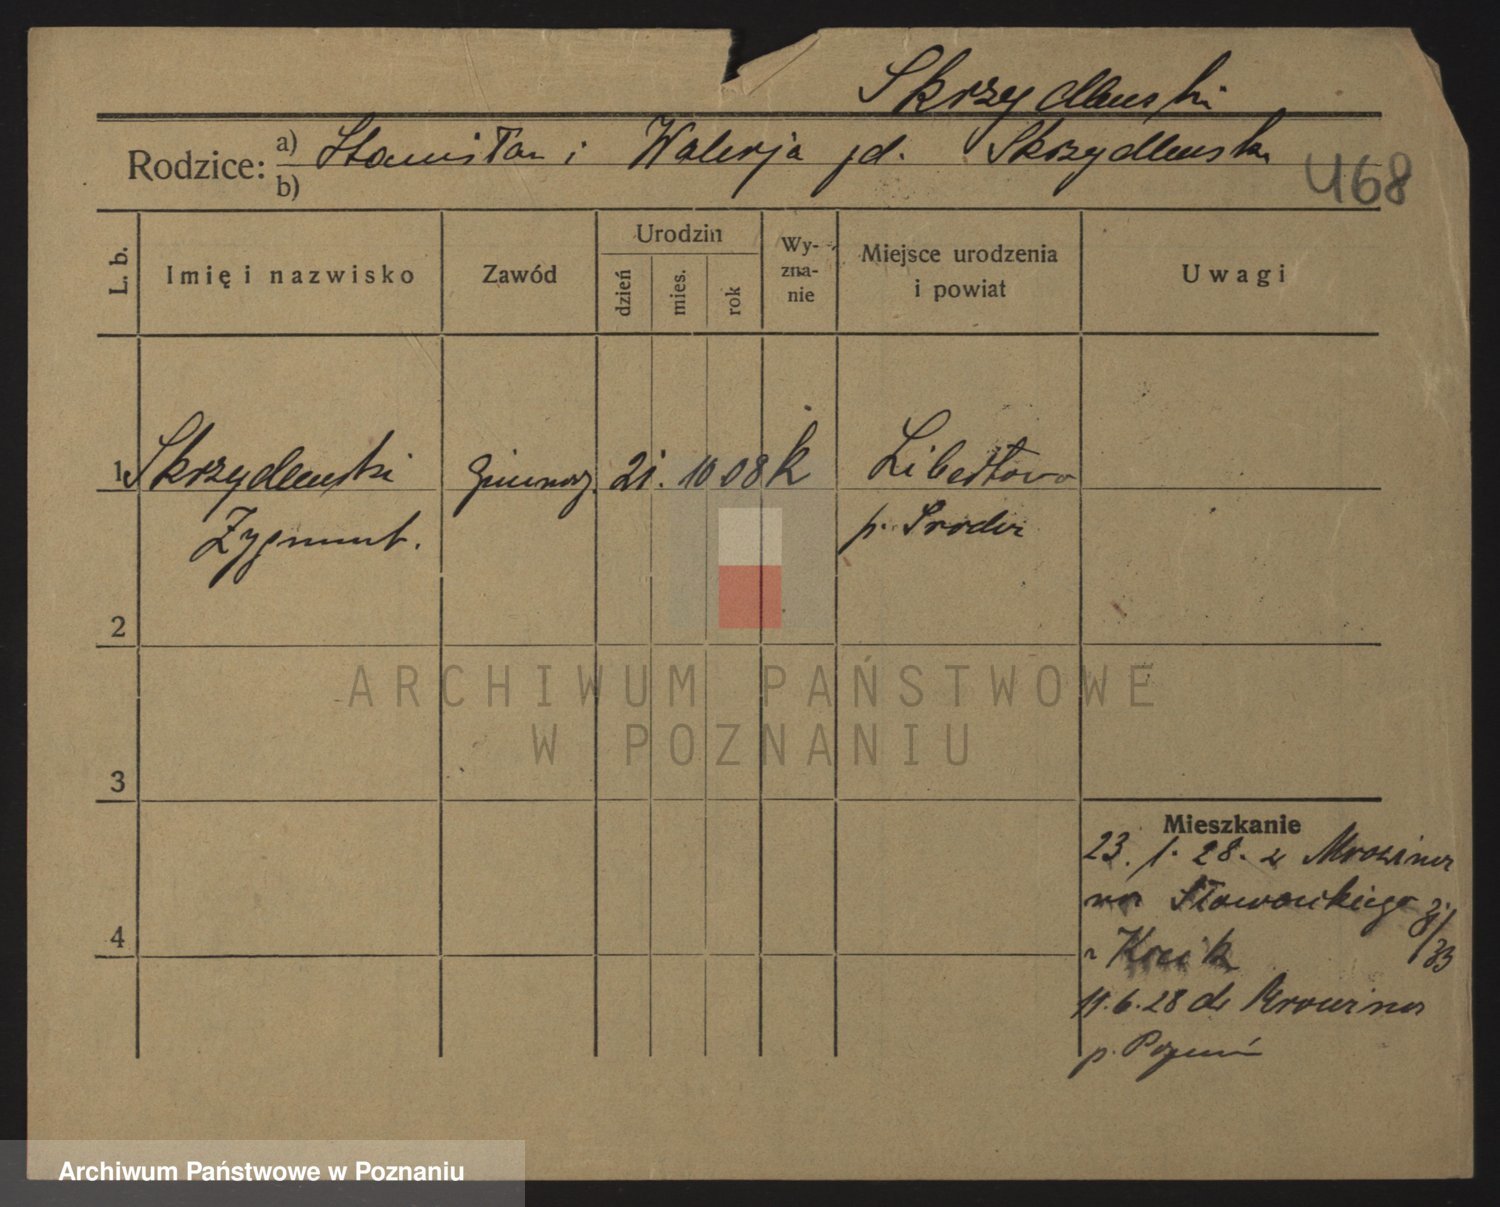 Skrzydlewski
Rodzice: a) Stanisław i Walerja jd. Skrzydlewska
b)
468
L. b.
Imię i nazwisko
Zawód
Urodzin
dzień
mies.
rok
Wy-
zna-
nie
Miejsce urodzenia
i powiat
Uwagi
1 Skrzydlewski gimnaz. 21. 10 08 k Libertowo
Zygmunt. p. Środa
2
ARCHIWUM PAŃSTWOWE
W POZNANIU
3
Mieszkanie
23. 1. 28. z Mrowina
na Słowackiego 31/33
Kocik
11.6.28 do Mrowina
p. Poznań
4
Archiwum Państwowe w Poznaniu